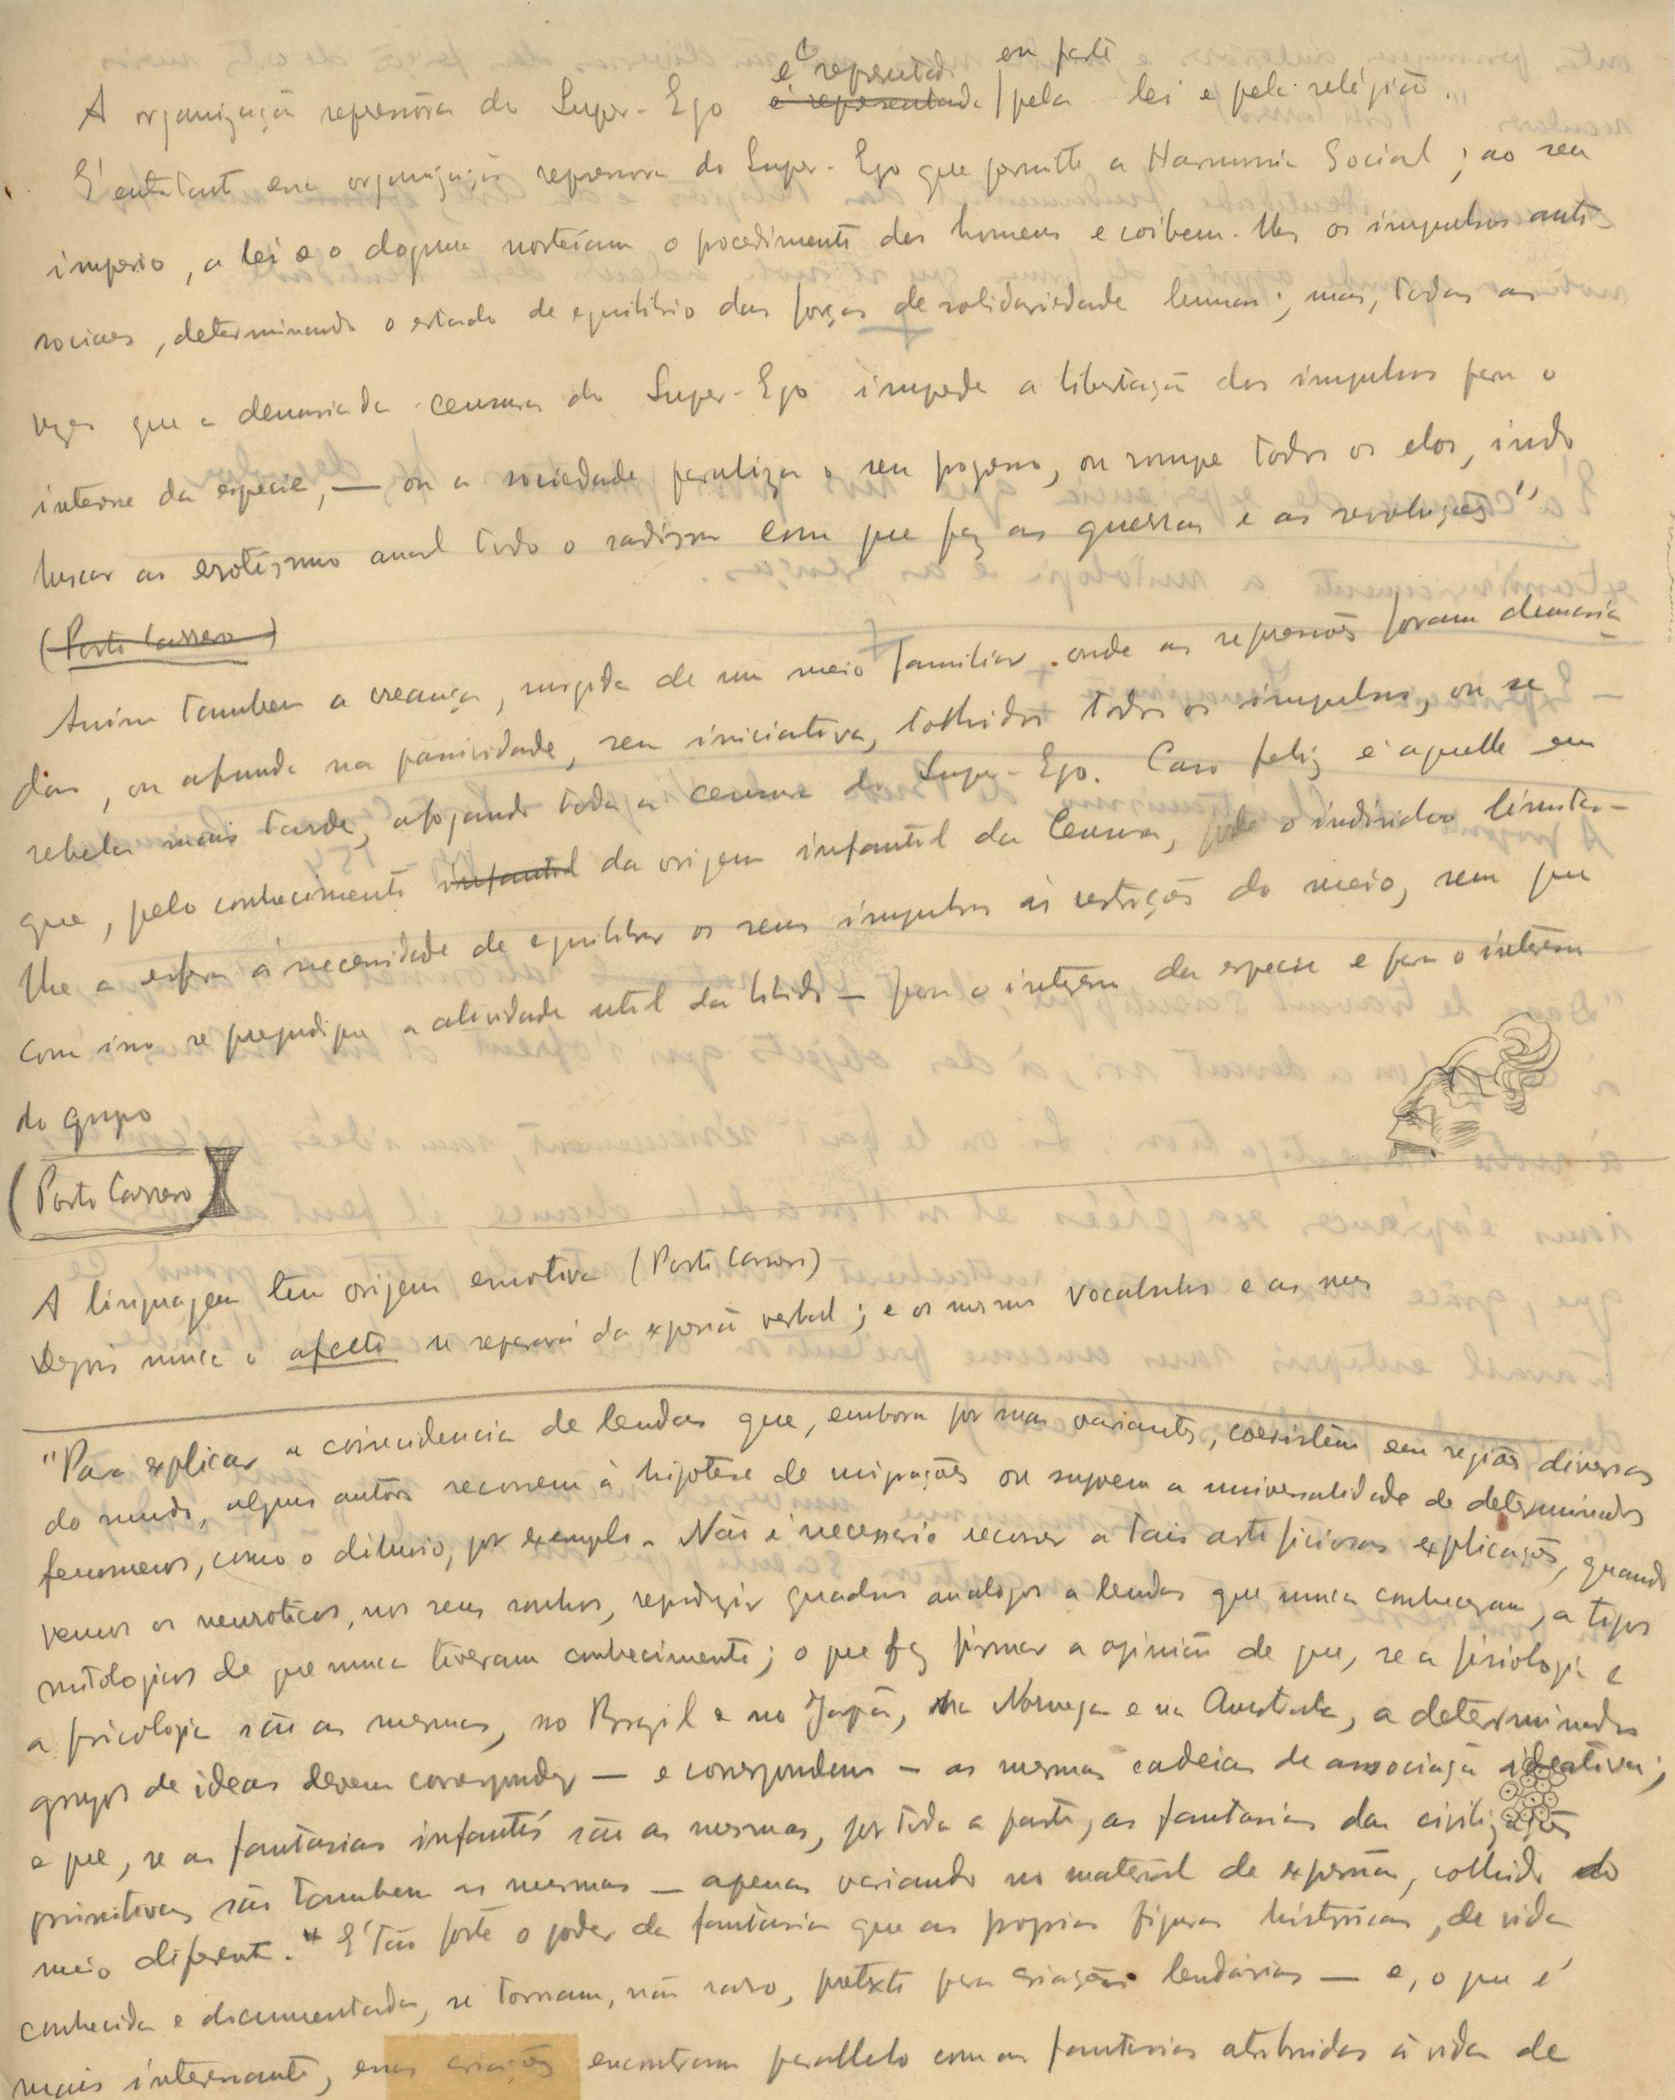 é representada em parte
A organização repressora do Super-Ego é representada pela lei e pela religião.
É entretanto essa organização repressora do Super-Ego que permitte a Harmonia Social; ao seu
imperio, a lei e o dogma norteiam o procedimento dos homens e coibem-lhes os impulsos anti-
sociaes, determinando o estado de equilibrio das forças de solidariedade humana; mas, todas as
vezes que a demasiada censura do Super-Ego impede a libertação dos impulsos para o
interesse da especie, — ou a sociedade paralisa o seu progresso, ou rompe todos os elos, indo
buscar ao erotismo anal todo o sadismo com que faz as guerras e as revoluções"
(Porto Carrero)
Assim tambem a creança, surgida de um meio familiar onde as repressões foram demasia-
das, ou afunda na passividade, sem iniciativa, tolhidos todos os impulsos, ou se
rebela mais tarde, afogando toda a censura do Super-Ego. Caso feliz é aquelle em
que, pelo conhecimento infantil da origem infantil da Censura, pode o individuo limitar-
lhe a esfera á necessidade de equilibrar os seus impulsos ás restrições do meio, sem que
com isso se prejudique a atividade util da libido — para o interesse da especie e para o interesse
do grupo
(Porto Carrero)
A linguagem tem origem emotiva (Porto Carrero)
Depois nunca o afecto se separará da expressão verbal; e os mesmos vocabulos e as mes
"Para explicar a coincidencia de lendas que, embora por mas variantes, coexistem em regiões diversas
do mundo, alguns autores recorrem á hipotese de migrações ou supoem a universalidade de determinados
fenomenos, como o diluvio, por exemplo. Não é necessario recorrer a tais artificiosas explicações, quando
vemos os neuroticos, nos seus sonhos, reproduzir quadros analogos a lendas que nunca conheceram, a tipos
mitologicos de que nunca tiveram conhecimento; o que faz firmar a opinião de que, se a fisiologia e
a psicologia são as mesmas, no Brazil e no Japão, na Noruega e na Australia, a determinados
grupos de ideas devem corresponder — e correspondem — as mesmas cadeias de associação ideativa;
e que, se as fantasias infantís são as mesmas, por toda a parte, as fantasias das civilizações
primitivas são tambem as mesmas — apenas variando no material de expressão, colhido do
meio diferente." É tão forte o poder da fantasia que as proprias figuras historicas, de vida
conhecida e documentada, se tornam, não raro, pretexto para criações lendarias — e, o que é
mais interessante, essas criações encontram parallelo com as fantasias atribuidas á vida de